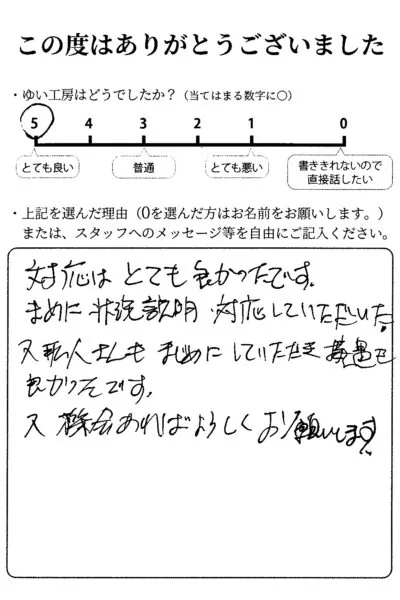 この度はありがとうございました
・ゆい工房はどうでしたか？（当てはまる数字に○）
5 4 3 2 1 0
とても良い 普通 とても悪い 書ききれないので
直接話したい
・上記を選んだ理由（0を選んだ方はお名前をお願いします。）
または、スタッフへのメッセージ等を自由にご記入ください。
対応は とても良かったです。
まめに状況説明・対応していただいた。
又職人さんも まじめにしていただき
良かったです。
又 機会あればよろしくお願いします